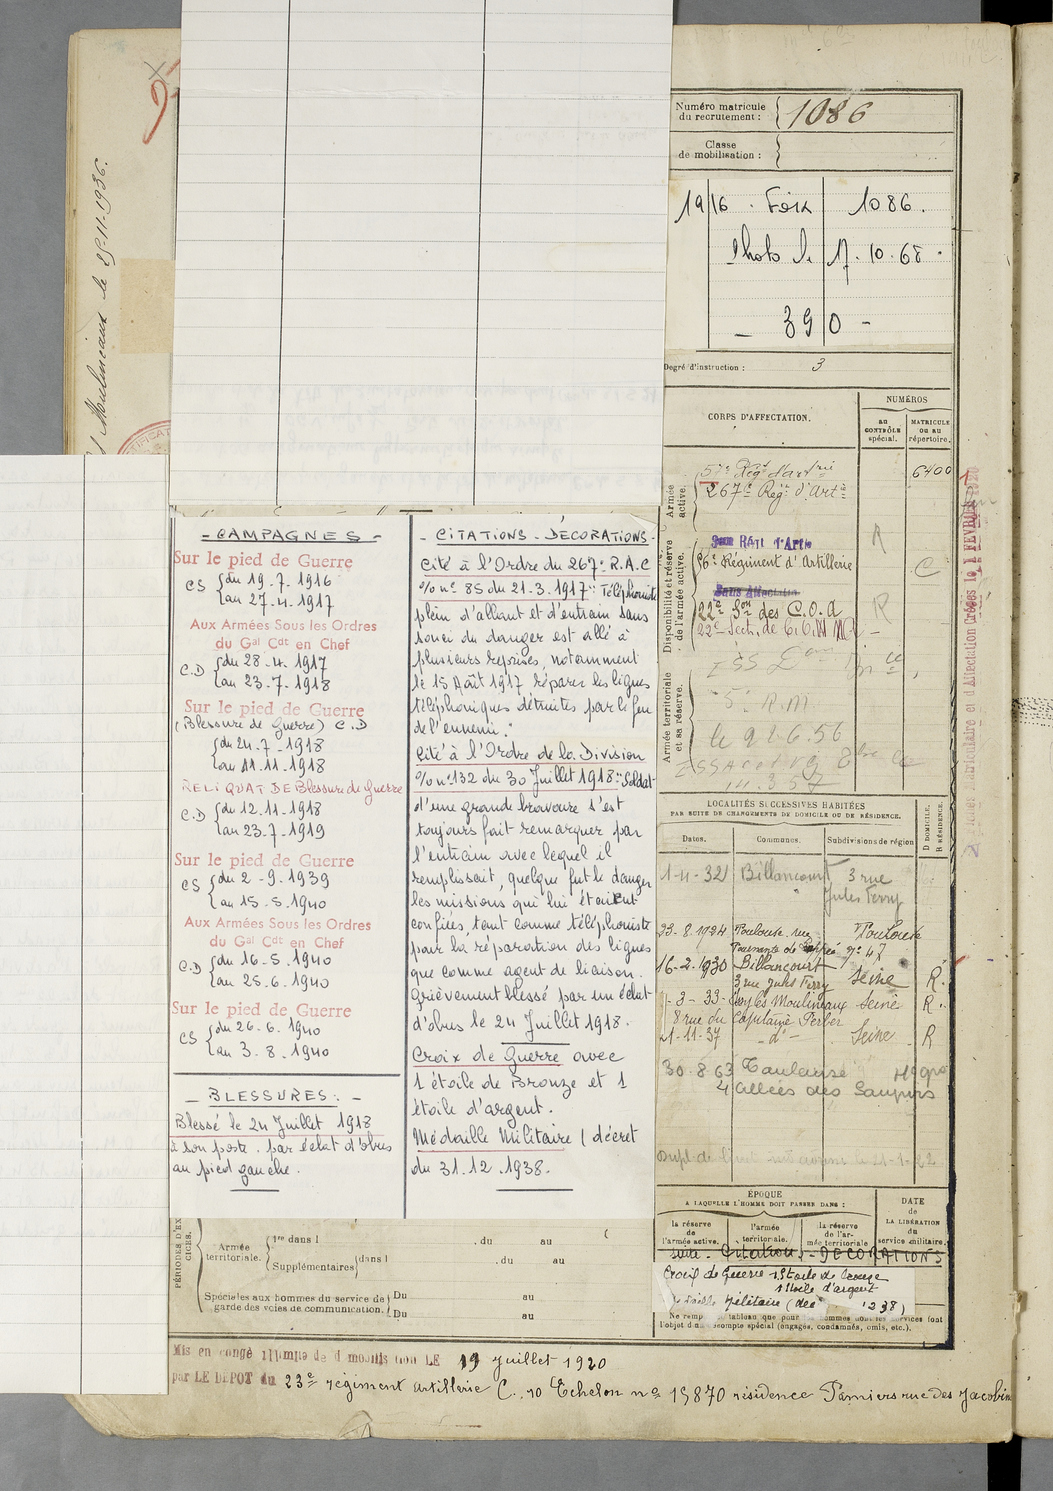 Moulineaux le 25.11.1936.
Numéro matricule
du recrutement :
1086
Classe
de mobilisation :
1916 . Foix 1086.
Photo le 17.10.68.
_ 390 -
Degré d'instruction : 3
CORPS D'AFFECTATION.
NUMÉROS
AU
CONTRÔLE
spécial.
MATRICULE
OU AU
répertoire.
Armée
active.
267e Régt d'Artie
6400
Disponibilité et réserve
de l'armée active.
Régiment d'Artillerie
R
C
Sans Affectation
22e Son des C.O.A
R
22e Sect. de
Armée territoriale
et sa réserve.
5e R.M.
le 9 2.6.56
LOCALITÉS SUCCESSIVES HABITÉES
PAR SUITE DE CHANGEMENTS DE DOMICILE OU DE RÉSIDENCE.
Dates.
Communes.
Subdivisions de région
D DOMICILE.
R RÉSIDENCE.
1-4-32 Billancourt 3 rue
Jules Ferry
23-8-1924 Toulouse rue Toulouse
no 47
16-2-1930 Billancourt Seine R.
3 rue Jules Ferry
3-33- Moulineaux Seine R.
8 rue du Capitaine Ferber
21-11-37 - do - Seine R
30 8 63 Toulouse
4 allées des Saupins
ÉPOQUE
A LAQUELLE L'HOMME DOIT PASSER DANS :
la réserve
de
l'armée active.
l'armée
territoriale.
la réserve
de l'ar-
mée territoriale
DATE
de
LA LIBÉRATION
du
service militaire.
suite - Citations - DECORATIONS
Croix de Guerre 1 Etoile de bronze
1 Etoile d'argent
Médaille Militaire
- CAMPAGNES -
Sur le pied de Guerre
CS { du 19.7.1916
au 27.4.1917
Aux Armées Sous les Ordres
du Gal Cdt en Chef
C.D { du 28.4.1917
au 23.7.1918
Sur le pied de Guerre
(Blessure de Guerre) C.D
{ du 24.7.1918
au 11.11.1918
RELIQUAT DE Blessure de Guerre
C.D { du 12.11.1918
au 23.7.1919
Sur le pied de Guerre
CS { du 2-9.1939
au 15.5.1940
Aux Armées Sous les Ordres
du Gal Cdt en Chef
C.D { du 16-5.1940
au 25.6.1940
Sur le pied de Guerre
CS { du 26-6.1940
au 3.8.1940
_ BLESSURES : _
Blessé le 24 Juillet 1918
à son poste. par éclat d'obus
au pied gauche.
- CITATIONS - DÉCORATIONS -
Cité à l'Ordre du 267e R.A.C
% no 85 du 21.3.1917 : "Téléphoniste
plein d'allant et d'entrain sans
souci du danger est allé à
plusieurs reprises, notamment
le 15 Août 1917 réparer les lignes
téléphoniques détruites par le feu
de l'ennemi."
Cité à l'Ordre de la Division
% no 132 du 30 Juillet 1918 : "Soldat
d'une grande bravoure s'est
toujours fait remarquer par
l'entrain avec lequel il
remplissait, quelque fut le danger
les missions qui lui étaient
confiées, tant comme téléphoniste
pour la réparation des lignes
que comme agent de liaison.
Grièvement blessé par un éclat
d'obus le 24 Juillet 1918.
Croix de Guerre avec
1 étoile de Bronze et 1
étoile d'argent.
Médaille Militaire ( décret
du 31.12.1938.
Armée
territoriale.
1re dans l
. du au
Supplémentaires
dans l
. du au
Spéciales aux hommes du service de
garde des voies de communication.
Du au
Du au
Mis en congé illimité de démobilisation LE 19 Juillet 1920
par LE DEPOT du 23e régiment artillerie C., 10 Echelon no 15870 résidence Pamiers rue des Jacobins